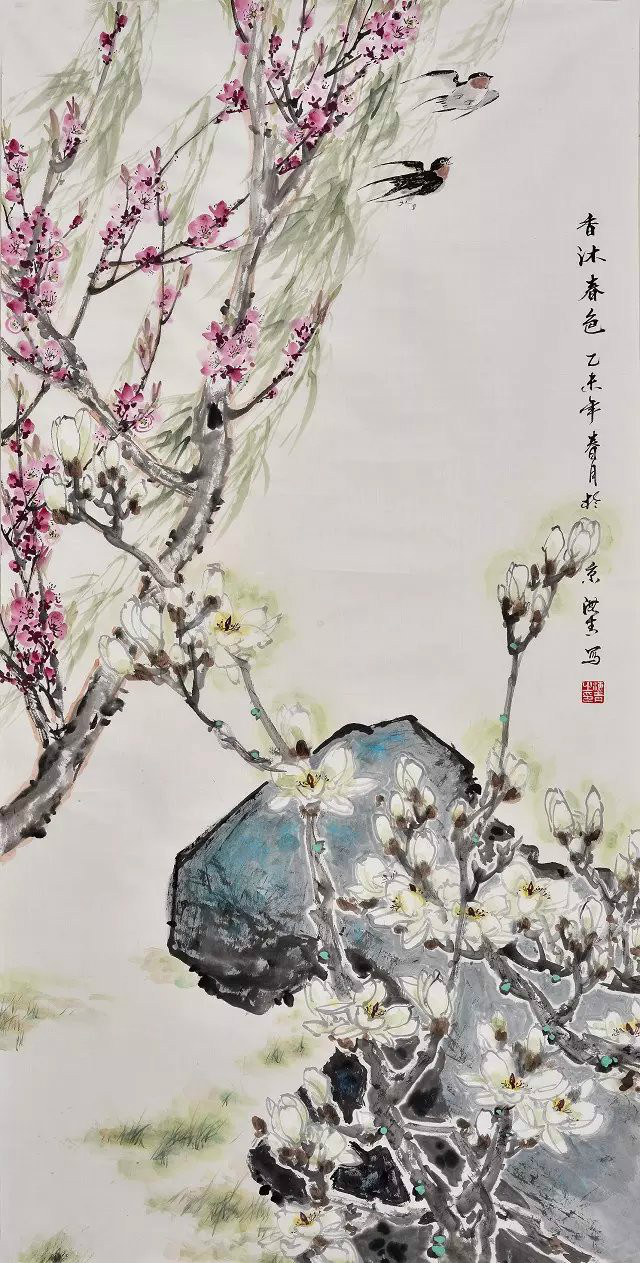 香沐春色 乙未年春月於京 写